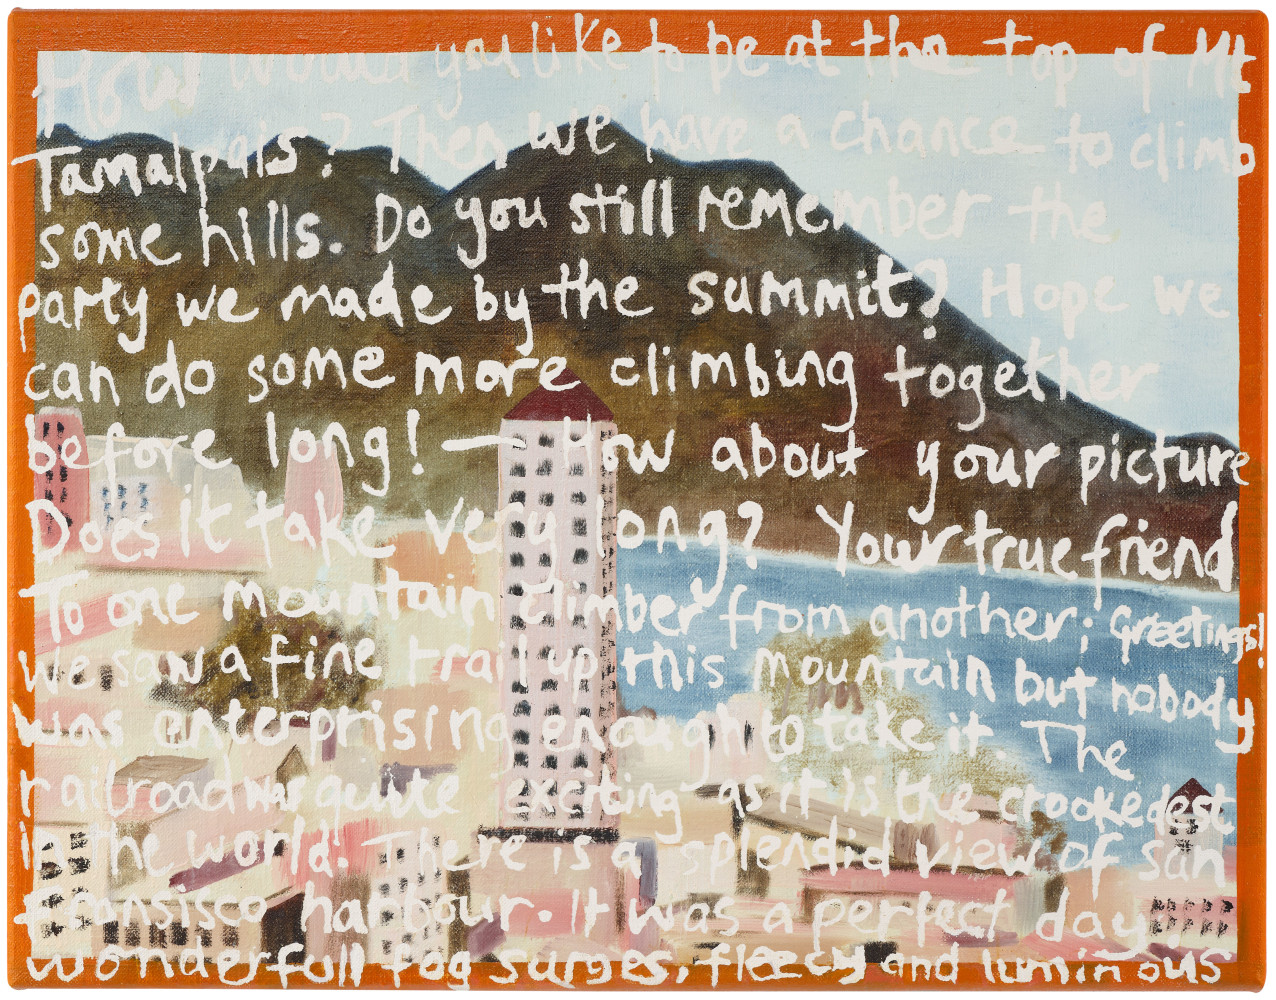 How would you like to be at the top of Mt
Tamalpais? Then we have a chance to climb
some hills. Do you still remember the
party we made by the summit? Hope we
can do some more climbing together
before long! — How about your picture
Does it take very long? Your true friend
To one mountain climber from another; Greetings!
We saw a fine trail up this mountain but nobody
was enterprising enough to take it. The
railroad was quite exciting as it is the crookedest
in the world. There is a splendid view of san
Fransisco harbour. It was a perfect day.
wonderfull fog surges, fleecy and luminous